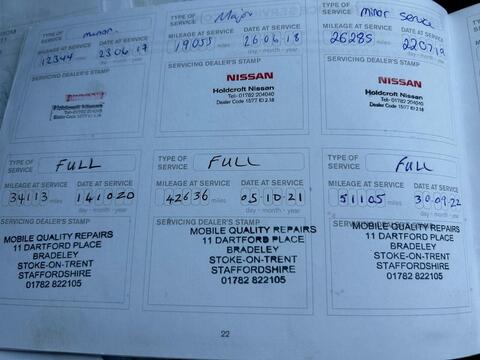 TYPE OF SERVICE minor
MILEAGE AT SERVICE DATE AT SERVICE
12344 miles 23 06 17
day - month - year
SERVICING DEALER'S STAMP
Holdcroft Nissan
TYPE OF SERVICE Major
MILEAGE AT SERVICE DATE AT SERVICE
19055 miles 26 06 18
day - month - year
SERVICING DEALER'S STAMP
NISSAN
Holdcroft Nissan
Tel:- 01782 204040
Dealer Code 1577 ID 2.18
TYPE OF SERVICE minor service
MILEAGE AT SERVICE DATE AT SERVICE
26285 miles 220719
day - month - year
SERVICING DEALER'S STAMP
NISSAN
Holdcroft Nissan
Tel:- 01782 204040
Dealer Code 1577 ID 2.18
TYPE OF SERVICE FULL
MILEAGE AT SERVICE DATE AT SERVICE
34113 miles 141020
day - month - year
SERVICING DEALER'S STAMP
MOBILE QUALITY REPAIRS
11 DARTFORD PLACE
BRADELEY
STOKE-ON-TRENT
STAFFORDSHIRE
01782 822105
TYPE OF SERVICE FULL
MILEAGE AT SERVICE DATE AT SERVICE
42636 miles 05-10-21
day - month - year
SERVICING DEALER'S STAMP
MOBILE QUALITY REPAIRS
11 DARTFORD PLACE
BRADELEY
STOKE-ON-TRENT
STAFFORDSHIRE
01782 822105
TYPE OF SERVICE FULL
MILEAGE AT SERVICE DATE AT SERVICE
51105 miles 30.09.22
day - month - year
SERVICING DEALER'S STAMP
MOBILE QUALITY REPAIRS
11 DARTFORD PLACE
BRADELEY
STOKE-ON-TRENT
STAFFORDSHIRE
01782 822105
22